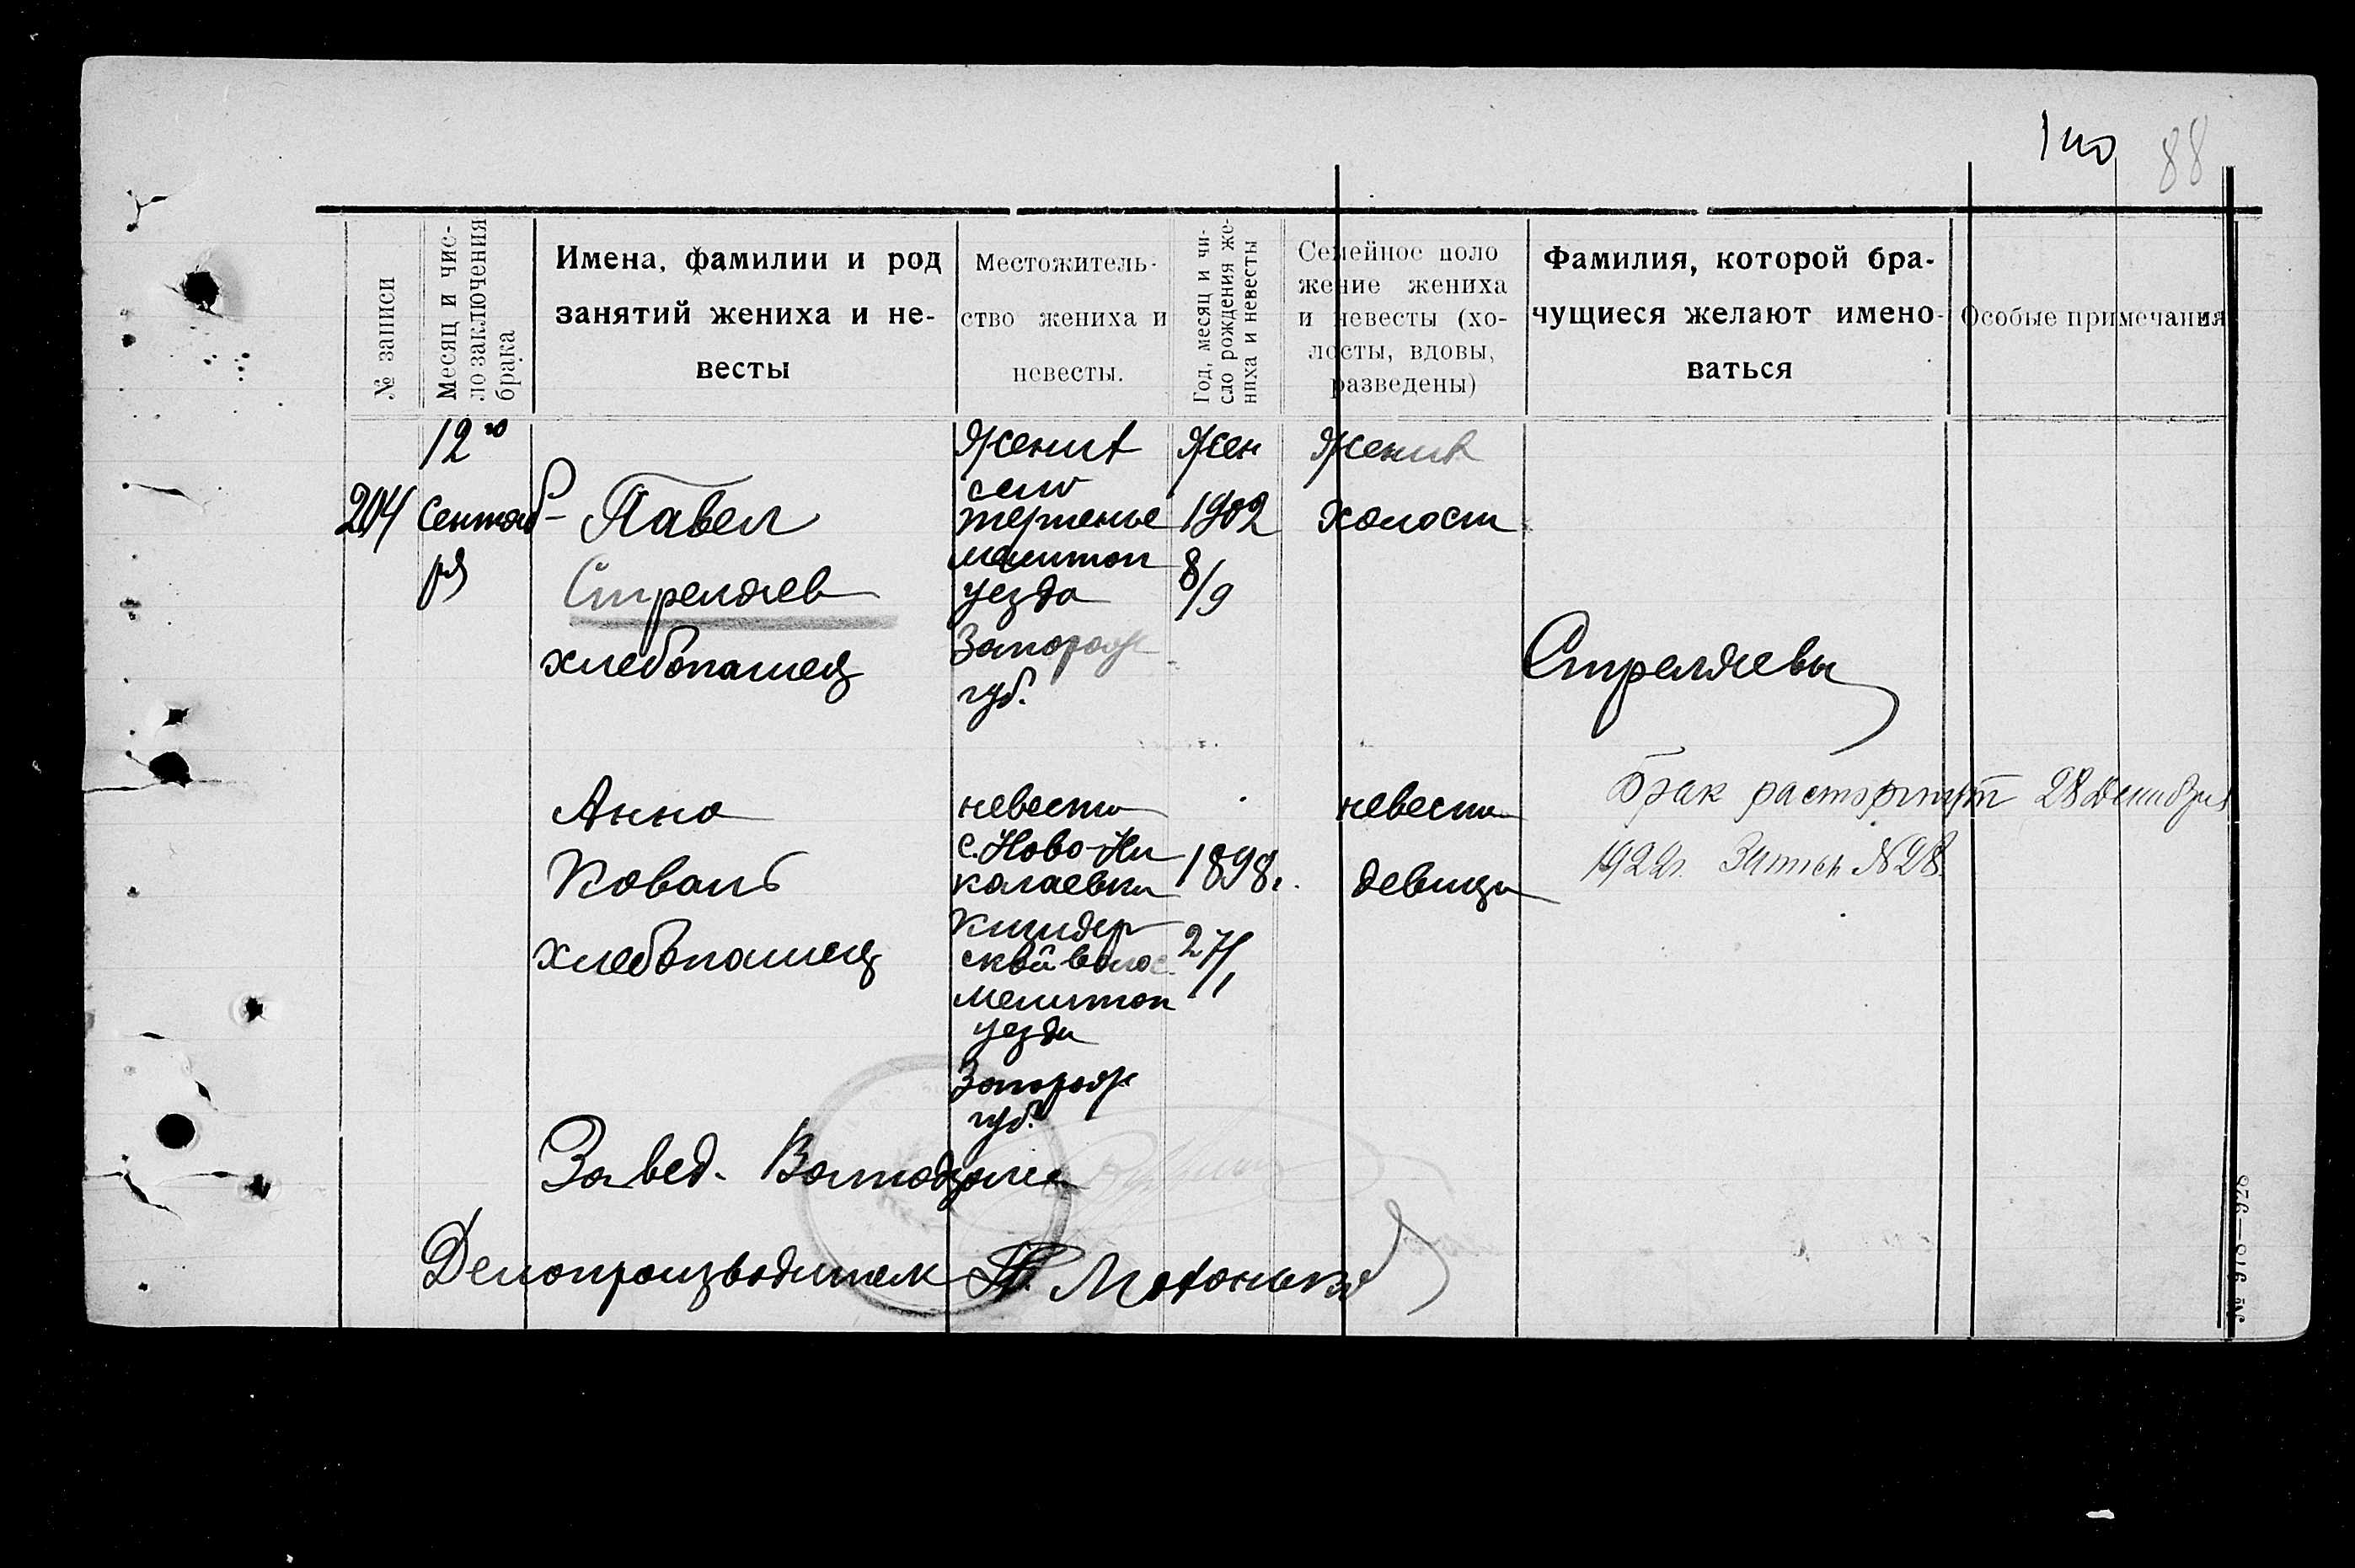 88
№ записи
Месяц и чис-
ло заключения
брака
Имена, фамилии и род
занятий жениха и не-
весты
Местожитель-
ство жениха и
невесты.
Год, месяц и чи-
сло рождения же-
ниха и невесты
Семейное поло
жение жениха
и невесты (хо-
лосты, вдовы,
разведены)
Фамилия, которой бра-
чущиеся желают имено-
ваться
Особые примечания
204
12го
Сентяб-
ря
Павел
Стреляев
хлебопашец
Жених
село
Терпенье
Мелитоп
уезда
Запорож
губ.
Жен
1902
8/9
Жених
холост
Стреляевы
Анна
Коваль
хлебопашец
невеста
с. Ново-Ни
колаевка
ской волос.
Мелитоп
уезда
Запорож
губ.
1898г.
27/1
невеста
девица
Брак расторгнут 28 декабря
1922г. Запись №28.
Завед.
Делопроизводитель